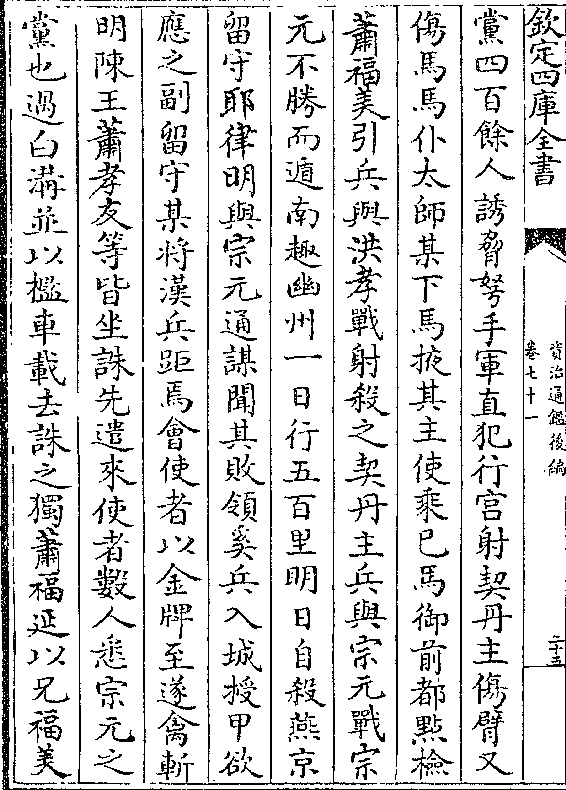 欽定四庫全書
資治通鑑後編
卷七十一
二十五
黨四百餘人誘脅弩手軍直犯行宮射契丹主傷臂又
傷馬馬仆太師某下馬掖其主使乘已馬御前都點檢
蕭福美引兵與洪孝戰射殺之契丹主兵與宗元戰宗
元不勝而遁南趣幽州一日行五百里明日自殺燕京
留守耶律明與宗元通謀聞其敗領奚兵入城授甲欲
應之副留守某將漢兵距焉會使者以金牌至遂禽斬
明陳王蕭孝友等皆坐誅先遣來使者數人悉宗元之
黨也過白溝並以檻車載去誅之獨蕭福延以兄福美